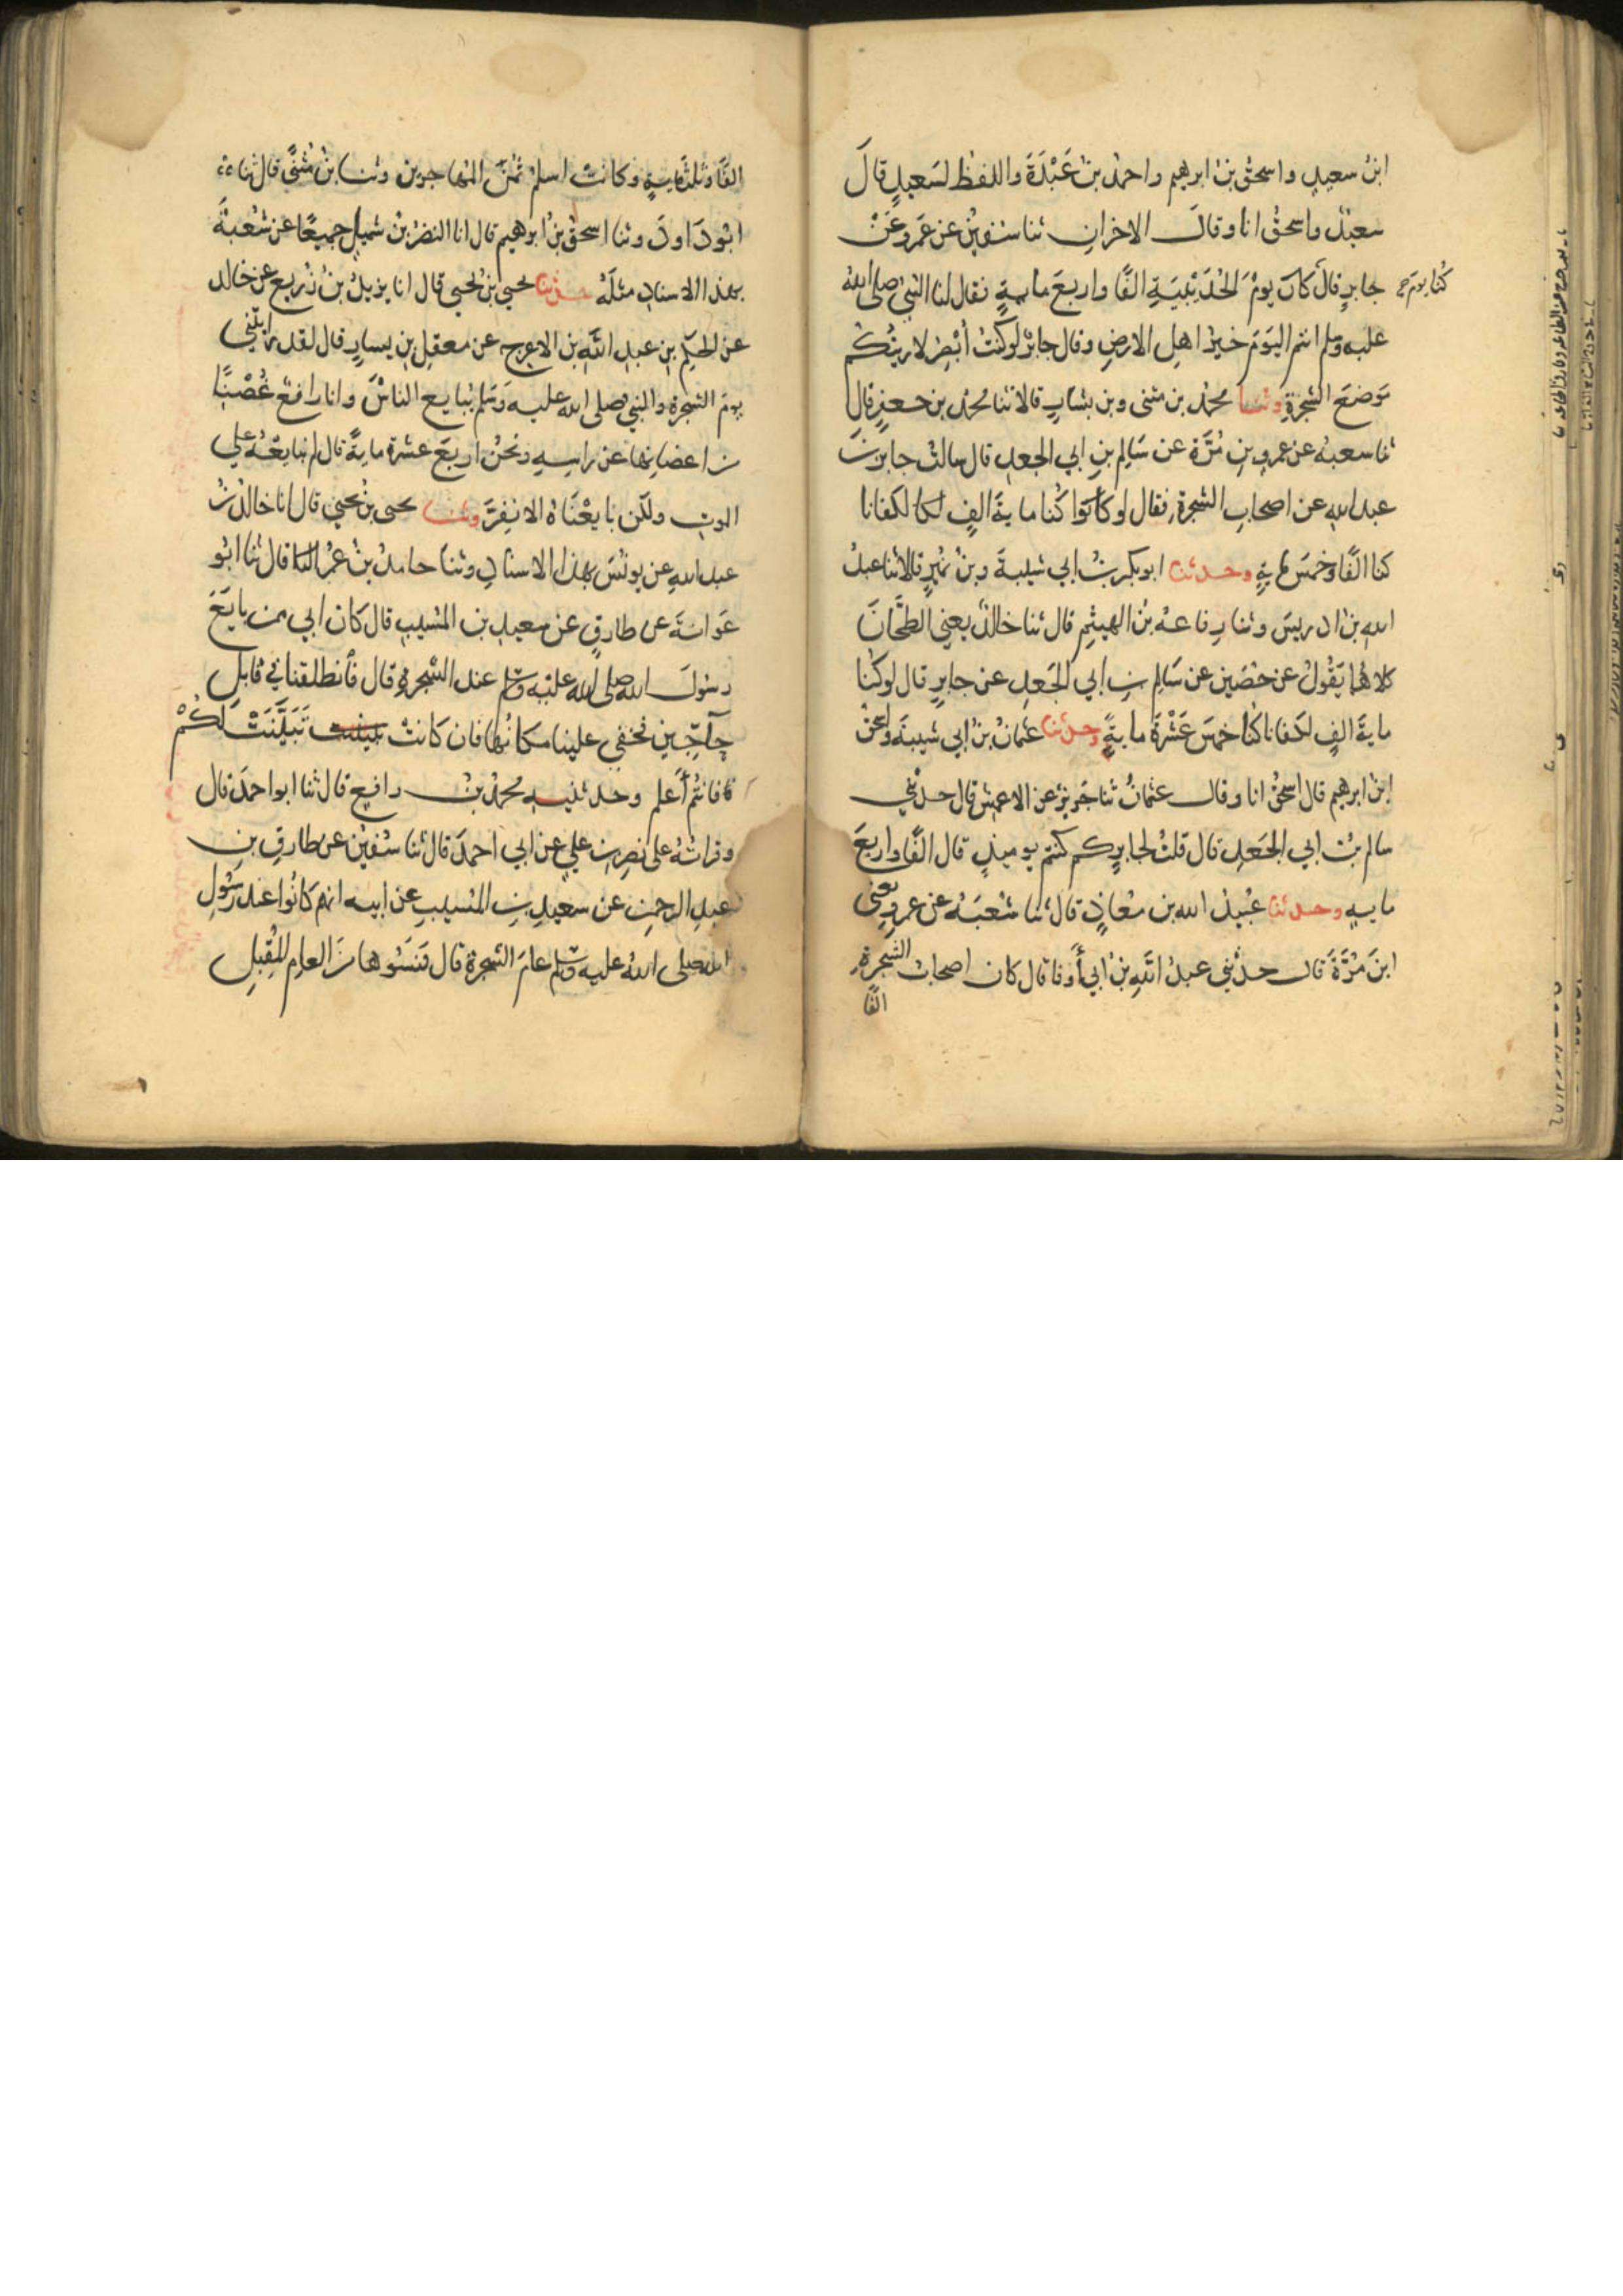 ابن سعيد واسحق بن ابرهيم واحمد بن عَبْدَةَ واللفظ لسَعيدٍ قالَ
سعيدٌ واسحقُ انا وقالَ الاخرانِ ثنا سفين عن عَمروعَنْ
جابرٍ قال كانَ يومَ الحُدَيْبِيَةِ الفًا واربعَ مايةٍ فقال لنا النبي صلى الله
كُنا يومَ
عليه وسلم انتم اليَومَ خيرُ اهلِ الارضِ وقال جابرٌ لوكنتُ أُبْصِرُ لاريتُكم
مَوضعَ الشجرةِ وثنا محمد بن مثنى وبن بشارٍ قالا ثنا محمد بن جعفرٍ قال
ثنا شعبة عن عمرو بنِ مُرَّة عن سَالِم بنِ ابي الجعدِ قال سالتُ جابرَ بنَ
عبد اللهِ عن اصحابِ الشجرةِ فقال لو كنا ماية الفٍ لكفانا
كنا الفًا وخمسَ مايةٍ وحدثنا ابوبكر بنُ ابي شيبةَ وبنُ نُميرٍ قالا ثنا عبدُ
الله بنُ ادريسَ وثنا رِفاعة بنُ الهيثمِ قال ثنا خالدٌ يعني الطحَّانَ
كلاهُما يَقُولُ عن حُصَين عن سَالِم بنِ ابي الجَعدِ عن جابرٍ قال لوكنا
مايةَ الفٍ لكفانا كُنا خمسَ عَشْرَةَ مايةً وحدثنا عثمانُ بنُ ابي شيبةَ واسحقُ
ابنُ ابرهيم قال اسحقُ انا وقال عثمانُ ثنا جَريرٌ عن الاعمشِ قال حدثني
سالم بنُ ابي الجَعدِ قال قلتُ لجابرٍ كم كنتم يوميذٍ قال الفًا واربعَ
مايةٍ وحدثنا عُبيدُ الله بن مُعَاذٍ قال ثنا شعبَة عن عمرٍو يعني
ابنَ مُرَّةَ قال حدثني عبدُ اللهِ بنُ ابي أَوفا قال كان اصحابُ الشجرةِ
الفًا
الفًا وثلثمايةٍ وكانتْ اسلمُ ثُمُنَ المُهاجرين وثنا بنُ مُثنًّى قال ثنا
ابوُ داودَ وثنا اسحقُ بنُ ابرهيم قال انا النضرُ بنُ شميلٍ جميعًا عن شُعبةَ
بهذا الاسنادِ مثلَهُ حدثنا يحيى بنُ يحيى قال انا يزيدُ بنُ زُريعٍ عن خالد
عن الحكم بنِ عبدِ اللهِ بن الاعرج عن معقِلِ بنِ يسارٍ قال لقد رايتُني
يومَ الشجرةِ والنبي صلى الله عليه وَسَلم يُبايع الناسَ وانا رافعٌ غُصْنًا
من اغصانِها عن راسِهِ ونحنُ اربَعَ عشرةَ مايةً قال لم نبايعْهُ على
الموتِ ولكن بايعْنَاهُ الا نفِرَّ وثنا يحيى بنُ يحيى قال انا خالدُ بنُ
عبد اللهِ عن يونُسَ بهذا الاسنادِ وثنا حامدُ بنُ عُمرَ قال ثنا ابُو
عَوَانَةَ عن طارقٍ عن سعيدِ بن المُسيبِ قال كان ابي ممن بايَعَ
رسُولَ الله صلى الله عليه وسلم عند الشَّجرةِ قال فانطلقنا في قابلٍ
حاجِّين فخفي علينا مكانُها فان كانتْ تَبَيَّنَتْ لَكُمْ
فانتُم أَعلم وحدثنيهِ محمدُ بنُ رافعٍ قال ثنا ابواحمدَ قال
وقراتُهُ على نصرِ بنِ عليٍ عن ابي احمدَ قال ثنا سُفين عن طارقِ بنِ
عبدِ الرحمنِ عن سعيدِ بنِ المُسيبِ عن ابيه انهم كانُوا عندَ رَسُولِ
الله صلى اللهُ عليه وسلم عامَ الشجرةِ قال فَنَسُوها منَ العامِ المُقبِلِ